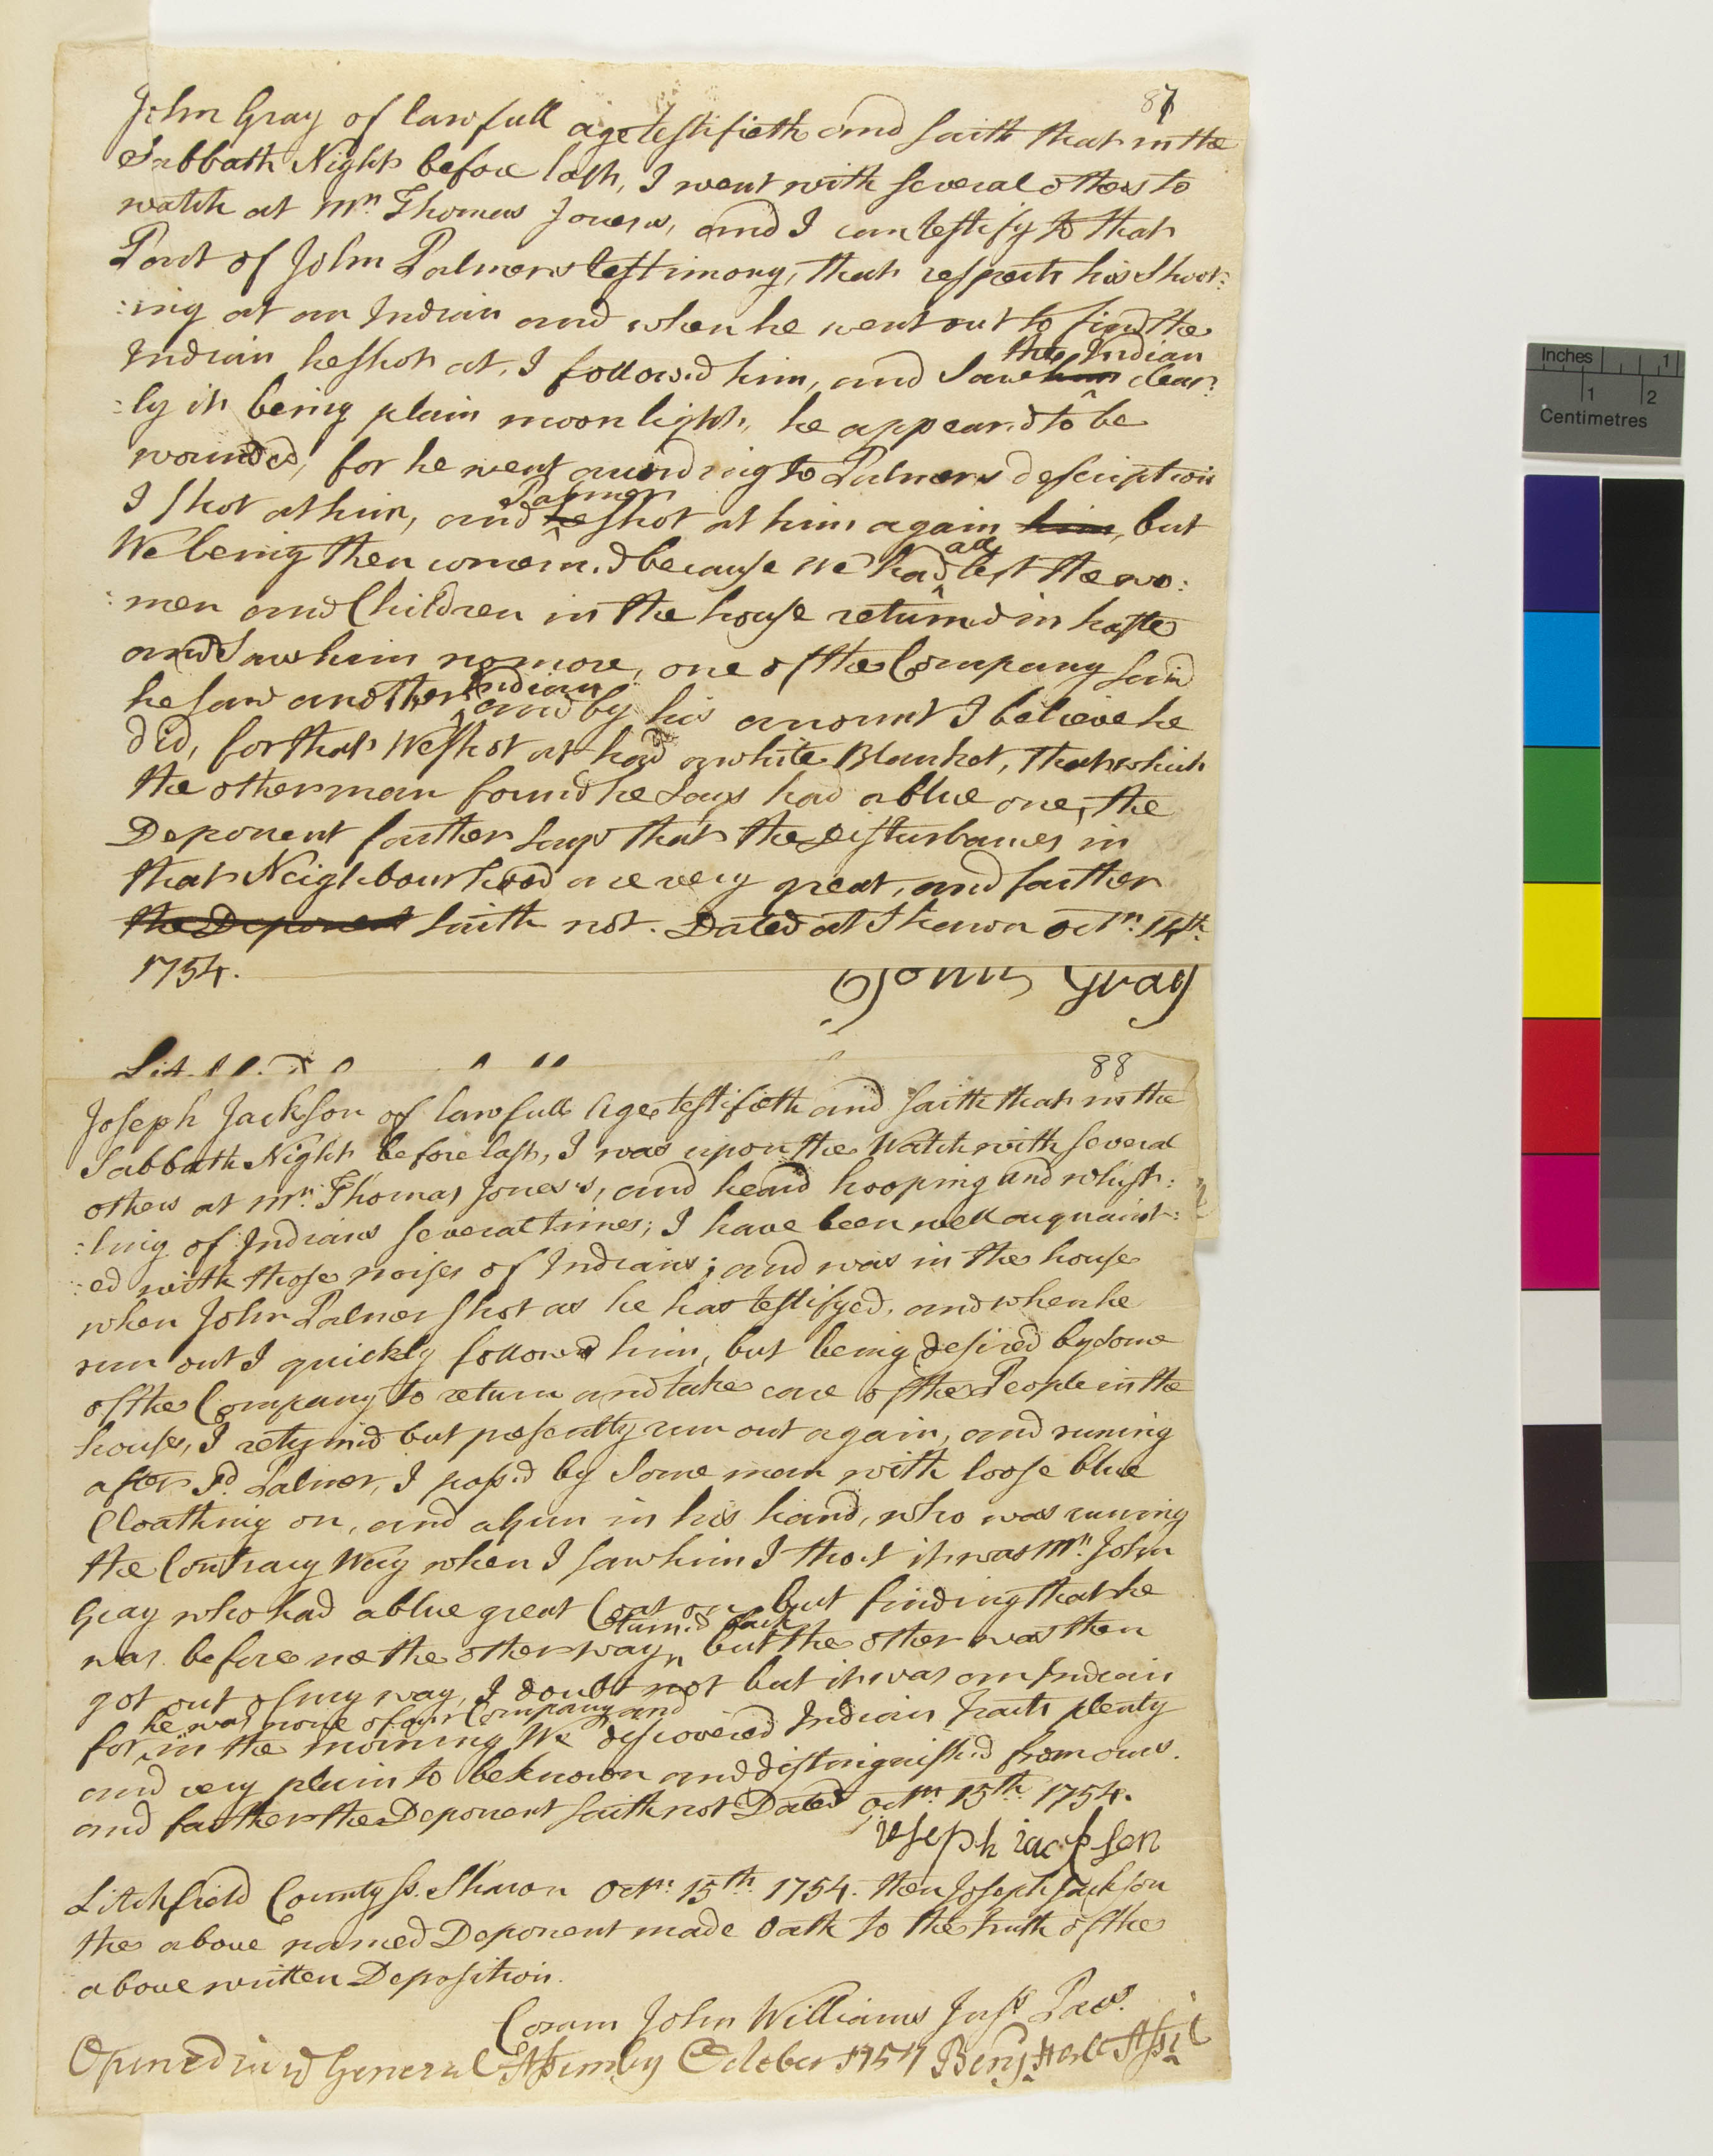 87
John Gray of lawfull age testifieth and saith that in the
Sabbath Night before last, I went with several others to
watch at Mr. Thomas Jones's, and I can testify to that
Part of John Palmers testimony, that respects his shoot:
:ing at an Indian and when he went out to find the
Indian he shot at, I follow'd him, and saw him the Indian clear:
:ly it being plain moon light, he appear'd to be
wounded, for he went according to Palmers description
I shot at him, and he Palmer shot at him again him, but
We being then concern'd because We had all left the wo:
:men and Children in the house return'd in haste
and saw him no more, one of the Company said
he saw another Indian and by his account I believe he
did, for that We shot at had a white Blanket, that which
the other man found he says had a blue one, the
Deponent farther says that the disturbances in
that Neighbourhood are very great, and farther
the Deponent saith not. Dated at Sharon Octr. 14th.
1754.
John Gray
88
Joseph Jackson of lawfull Age testifieth and saith that in the
Sabbath Night before last, I was upon the Watch with several
others at Mr. Thomas Jones's, and heard hooping and whist:
:ling of Indians several times; I have been well acquaint:
:ed with those noises of Indians; and was in the house
when John Palmer shot as he has testifyed, and when he
run out I quickly follow'd him, but being desired by some
of the Company to return and take care of the People in the
house, I return'd but presently run out again, and runing
after sd. Palmer, I pass'd by some man with loose blue
Cloathing on, and a gun in his hand, who was runing
the Contrary Way when I saw him I tho't it was Mr. John
Gray who had a blue great Coat on, but finding that he
was before me the other way I turn'd back but the other was then
got out of my way, I doubt not but it was an Indian
for he was none of our Company and in the morning We discovered Indian Tracts plenty
and very plain to be known and distinguish'd from ours.
and farther the Deponent saith not Dated Octr. 15th. 1754.
Joseph Jackson
Litchfield County ss. Sharon Octr. 15th. 1754. then Joseph Jackson
the above named Deponent made Oath to the truth of the
above written Deposition.
Coram John Williams Just. Pacs.
Opened in ye General Assembly October 1754 Benj Hall Assist
Inches 1
1 2
Centimetres